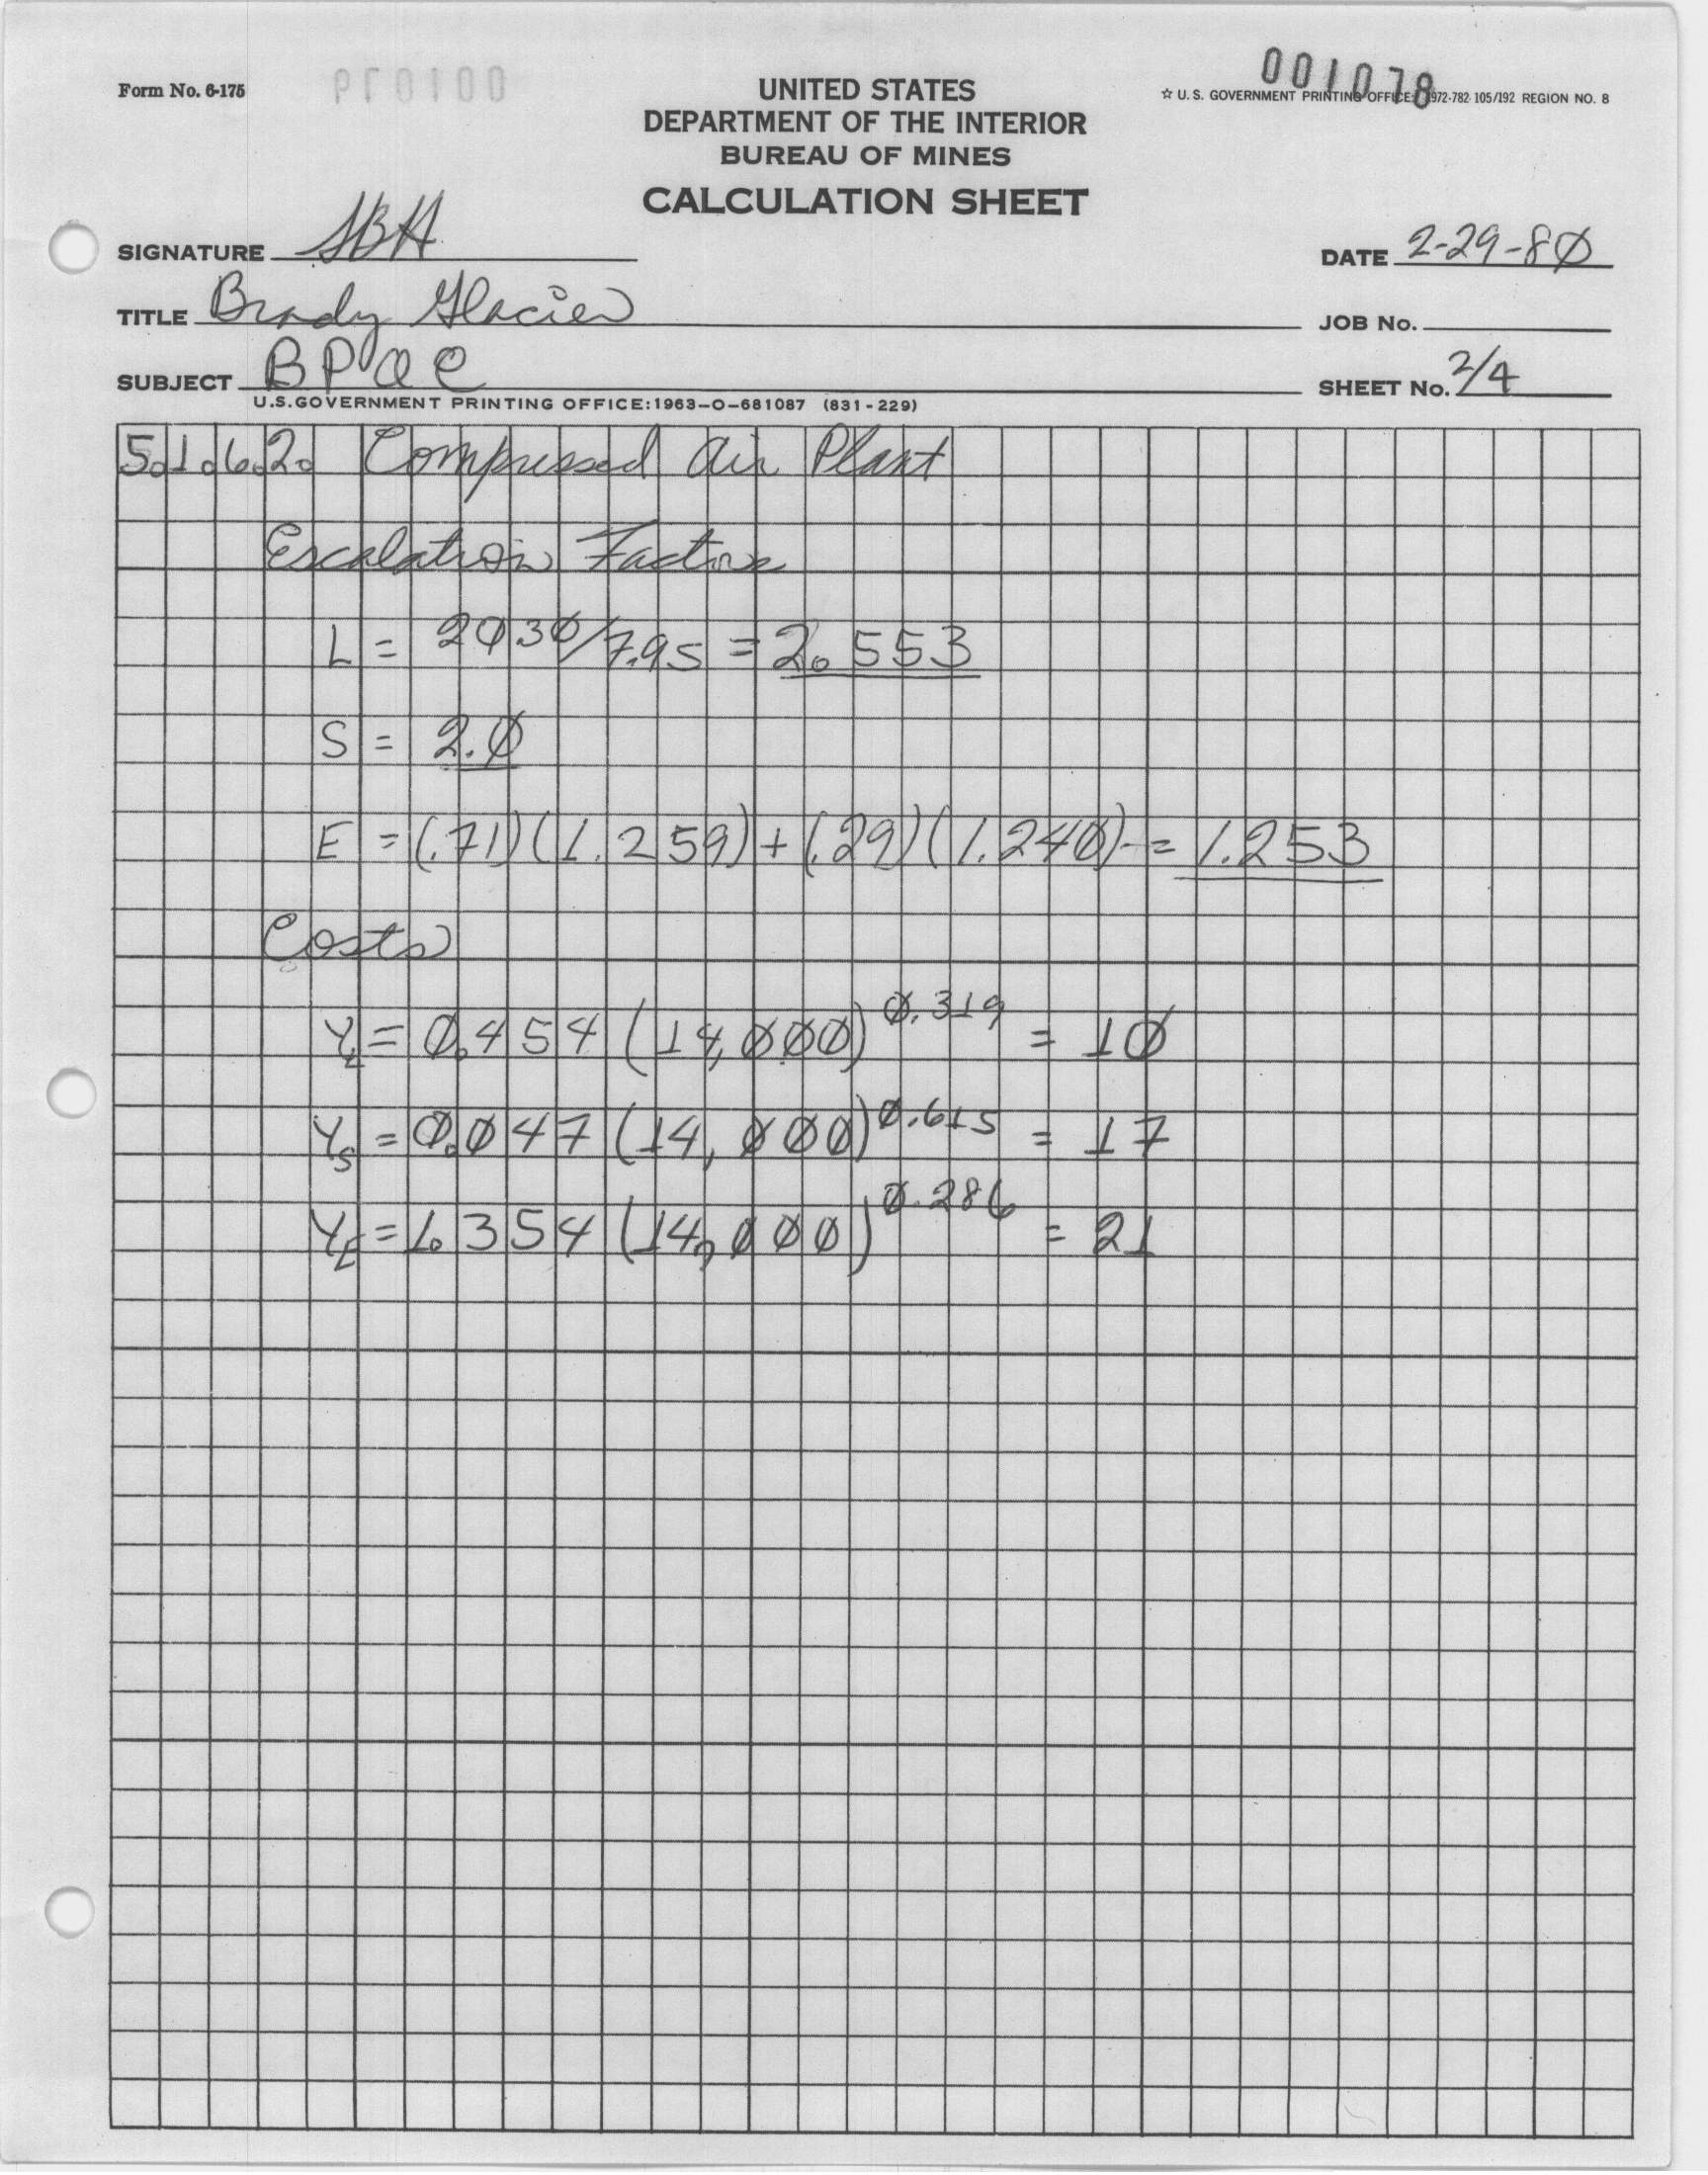 Form No. 6-175
001078
UNITED STATES
DEPARTMENT OF THE INTERIOR
BUREAU OF MINES
CALCULATION SHEET
☆ U. S. GOVERNMENT PRINTING OFFICE: 1972-782-105/192 REGION NO. 8
SIGNATURE SBH
DATE 2-29-8∅
TITLE Brady Glacier
JOB No.
SUBJECT BPOC
SHEET No. 2/4
U.S.GOVERNMENT PRINTING OFFICE:1963-O-681087 (831-229)
5.1.6.2. Compressed Air Plant
Escalation Factors
L = 2∅.3∅/7.95 = 2.553
S = 2.∅
E = (.71)(1.259)+(.29)(1.24∅) = 1.253
Costs
Y_L = ∅.454 (14,∅∅∅)^∅.319 = 1∅
Y_S = ∅.∅47 (14,∅∅∅)^∅.615 = 17
Y_E = 1.354 (14,∅∅∅)^∅.286 = 21